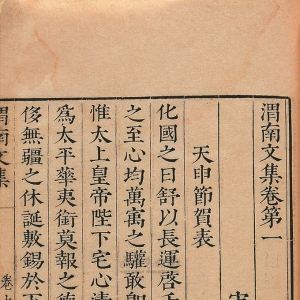 渭南文集卷第一
天申節賀表
化國之日舒以長運啓千
之至心均萬寓之驩敢卽
惟太上皇帝陛下宅心清
爲太平華夷銜莫報之
侈無疆之休誕敷錫於下
渭南文集
卷